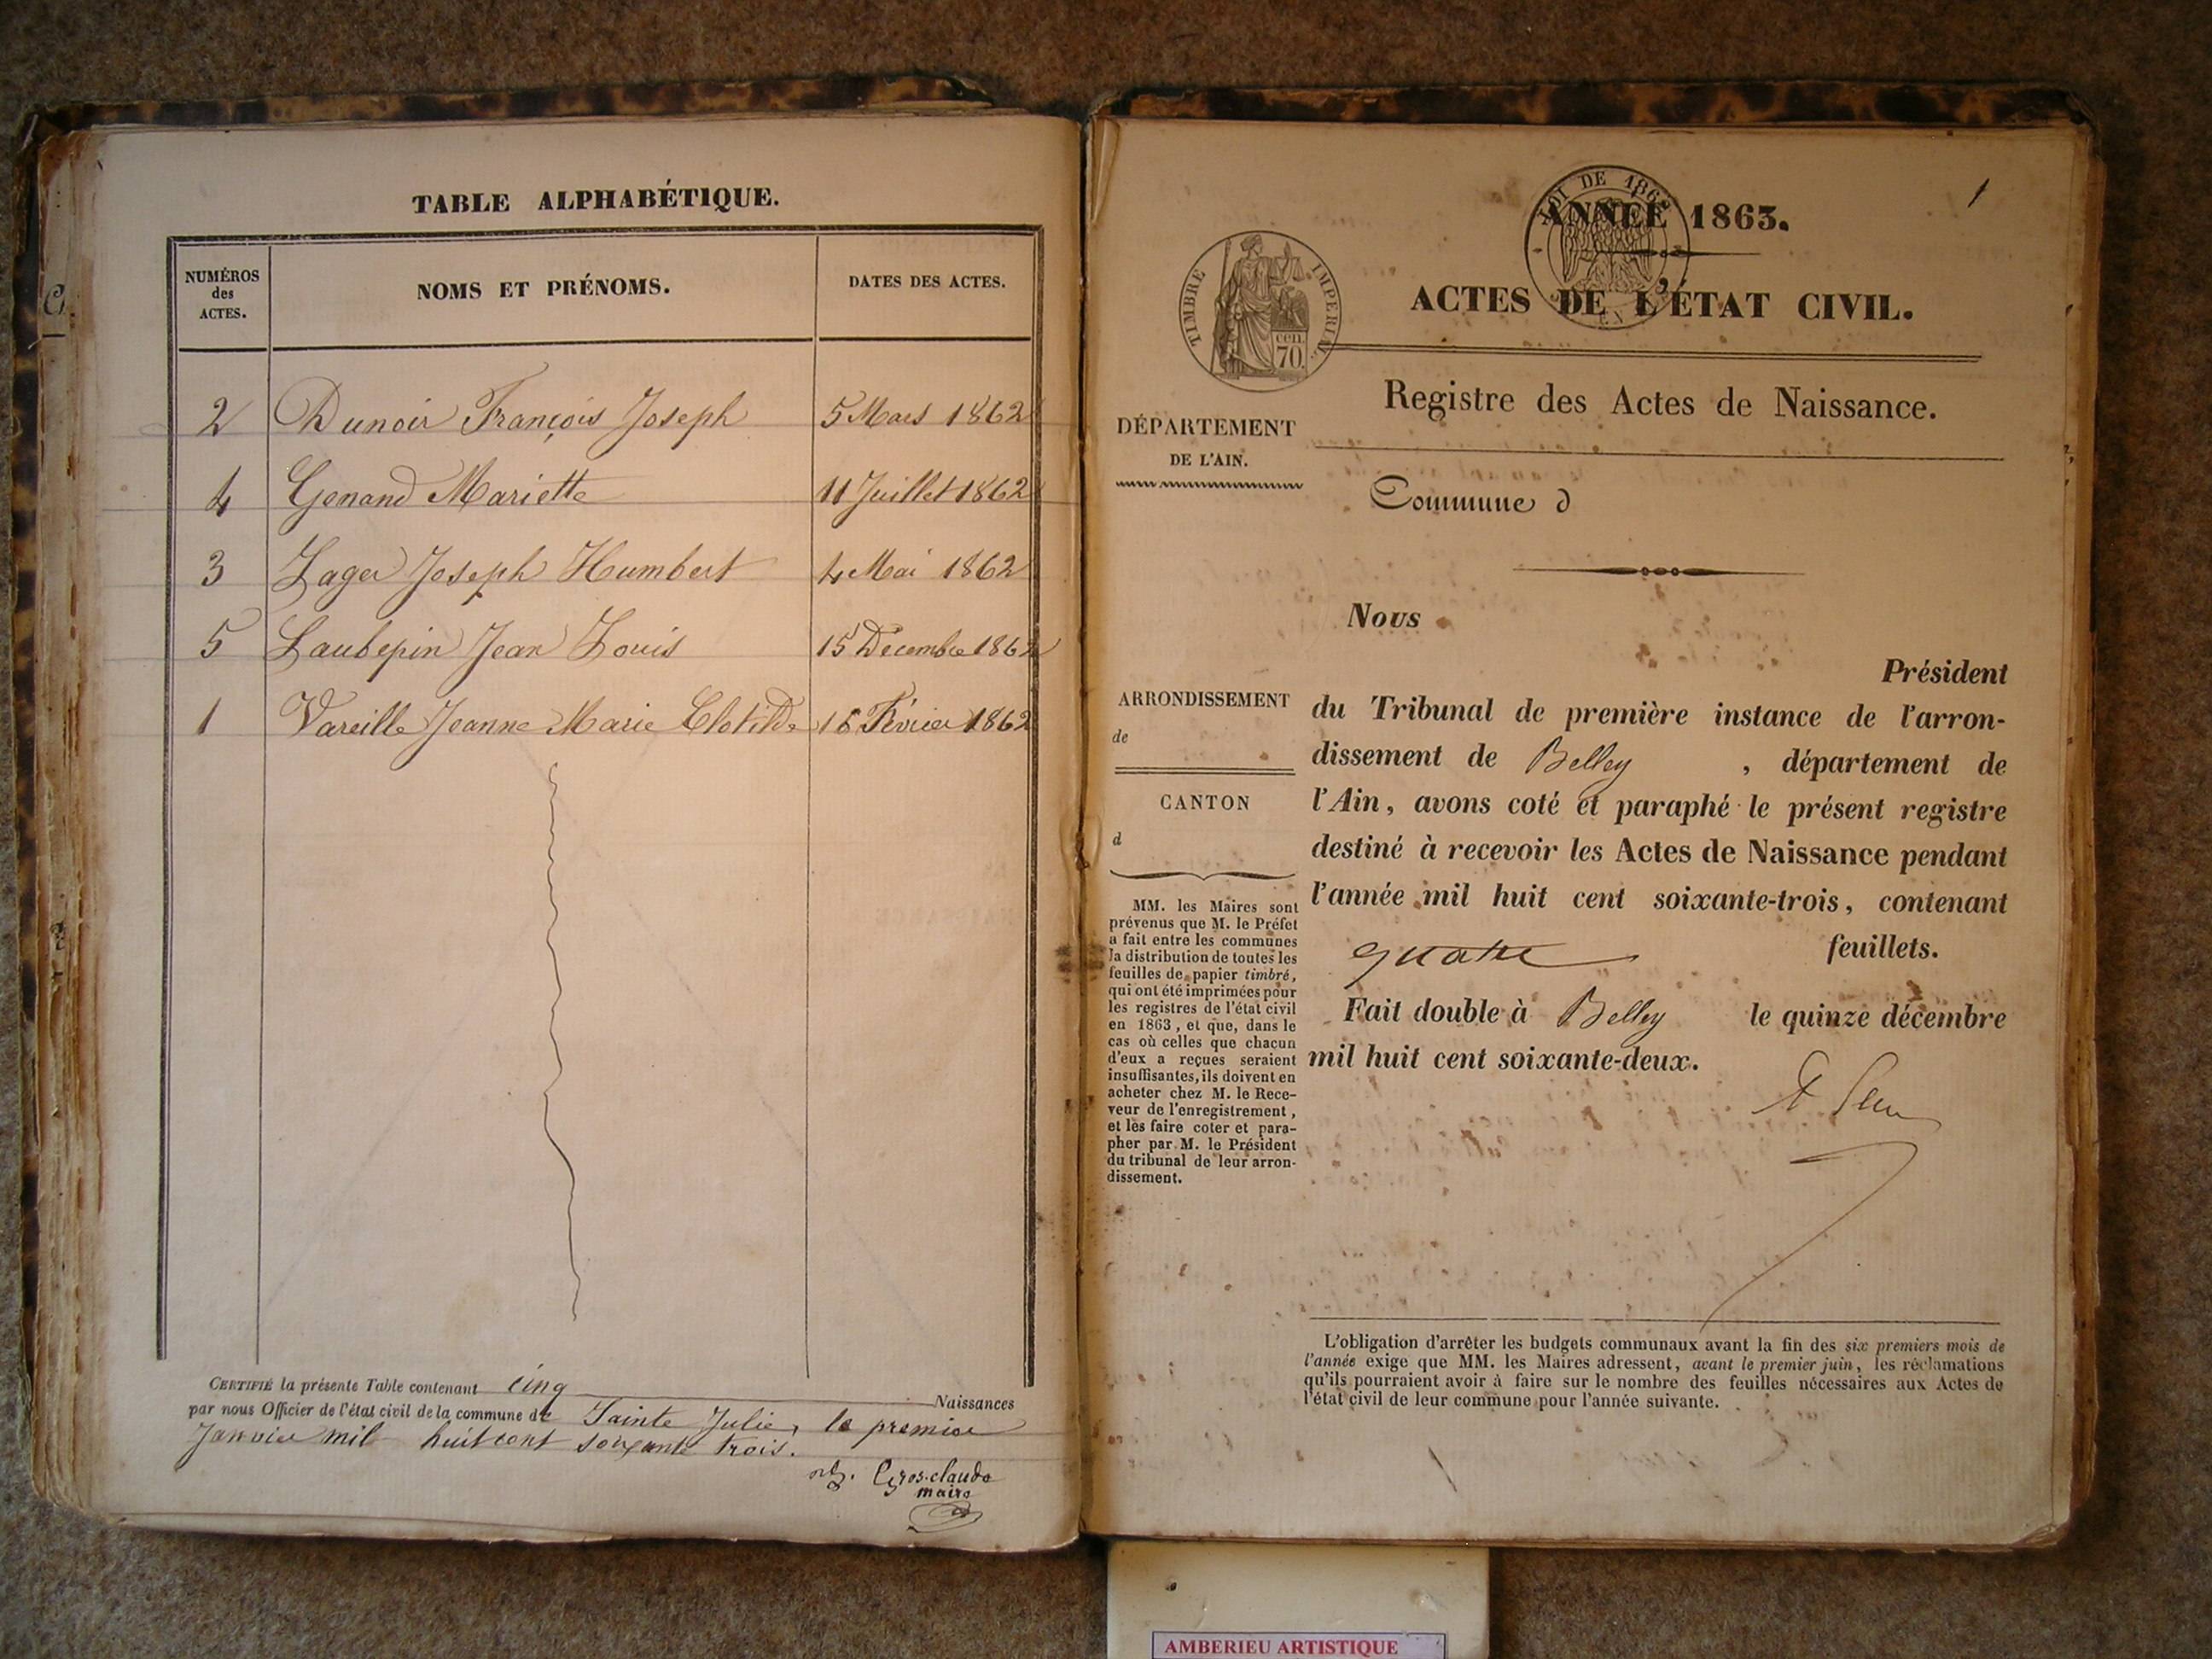 TABLE ALPHABÉTIQUE.
NUMÉROS des ACTES. NOMS ET PRÉNOMS. DATES DES ACTES.
2 Dunoir François Joseph 5 Mars 1862
4 Genand Mariette 11 Juillet 1862
3 Lager Joseph Humbert 4 Mai 1862
5 Laubepin Jean Louis 15 Décembre 1862
1 Vareille Jeanne Marie Clotilde 16 Février 1862
CERTIFIÉ la présente Table contenant cinq Naissances
par nous Officier de l'état civil de la commune de Sainte Julie, le premier
Janvier mil huit cent soixante trois.
Gros-claude
maire
1
LOI DE 1862
ANNÉE 1863.
ACTES DE L'ÉTAT CIVIL.
TIMBRE IMPERIAL
cen.
70.
Registre des Actes de Naissance.
DÉPARTEMENT
DE L'AIN.
Commune d
Nous
Président
du Tribunal de première instance de l'arron-
dissement de Belley , département de
l'Ain, avons coté et paraphé le présent registre
destiné à recevoir les Actes de Naissance pendant
l'année mil huit cent soixante-trois, contenant
quatre feuillets.
Fait double à Belley le quinze décembre
mil huit cent soixante-deux.
ARRONDISSEMENT
de
CANTON
d
MM. les Maires sont
prévenus que M. le Préfet
a fait entre les communes
la distribution de toutes les
feuilles de papier timbré,
qui ont été imprimées pour
les registres de l'état civil
en 1863, et que, dans le
cas où celles que chacun
d'eux a reçues seraient
insuffisantes, ils doivent en
acheter chez M. le Rece-
veur de l'enregistrement,
et les faire coter et para-
pher par M. le Président
du tribunal de leur arron-
dissement.
L'obligation d'arrêter les budgets communaux avant la fin des six premiers mois de
l'année exige que MM. les Maires adressent, avant le premier juin, les réclamations
qu'ils pourraient avoir à faire sur le nombre des feuilles nécessaires aux Actes de
l'état civil de leur commune pour l'année suivante.
AMBERIEU ARTISTIQUE